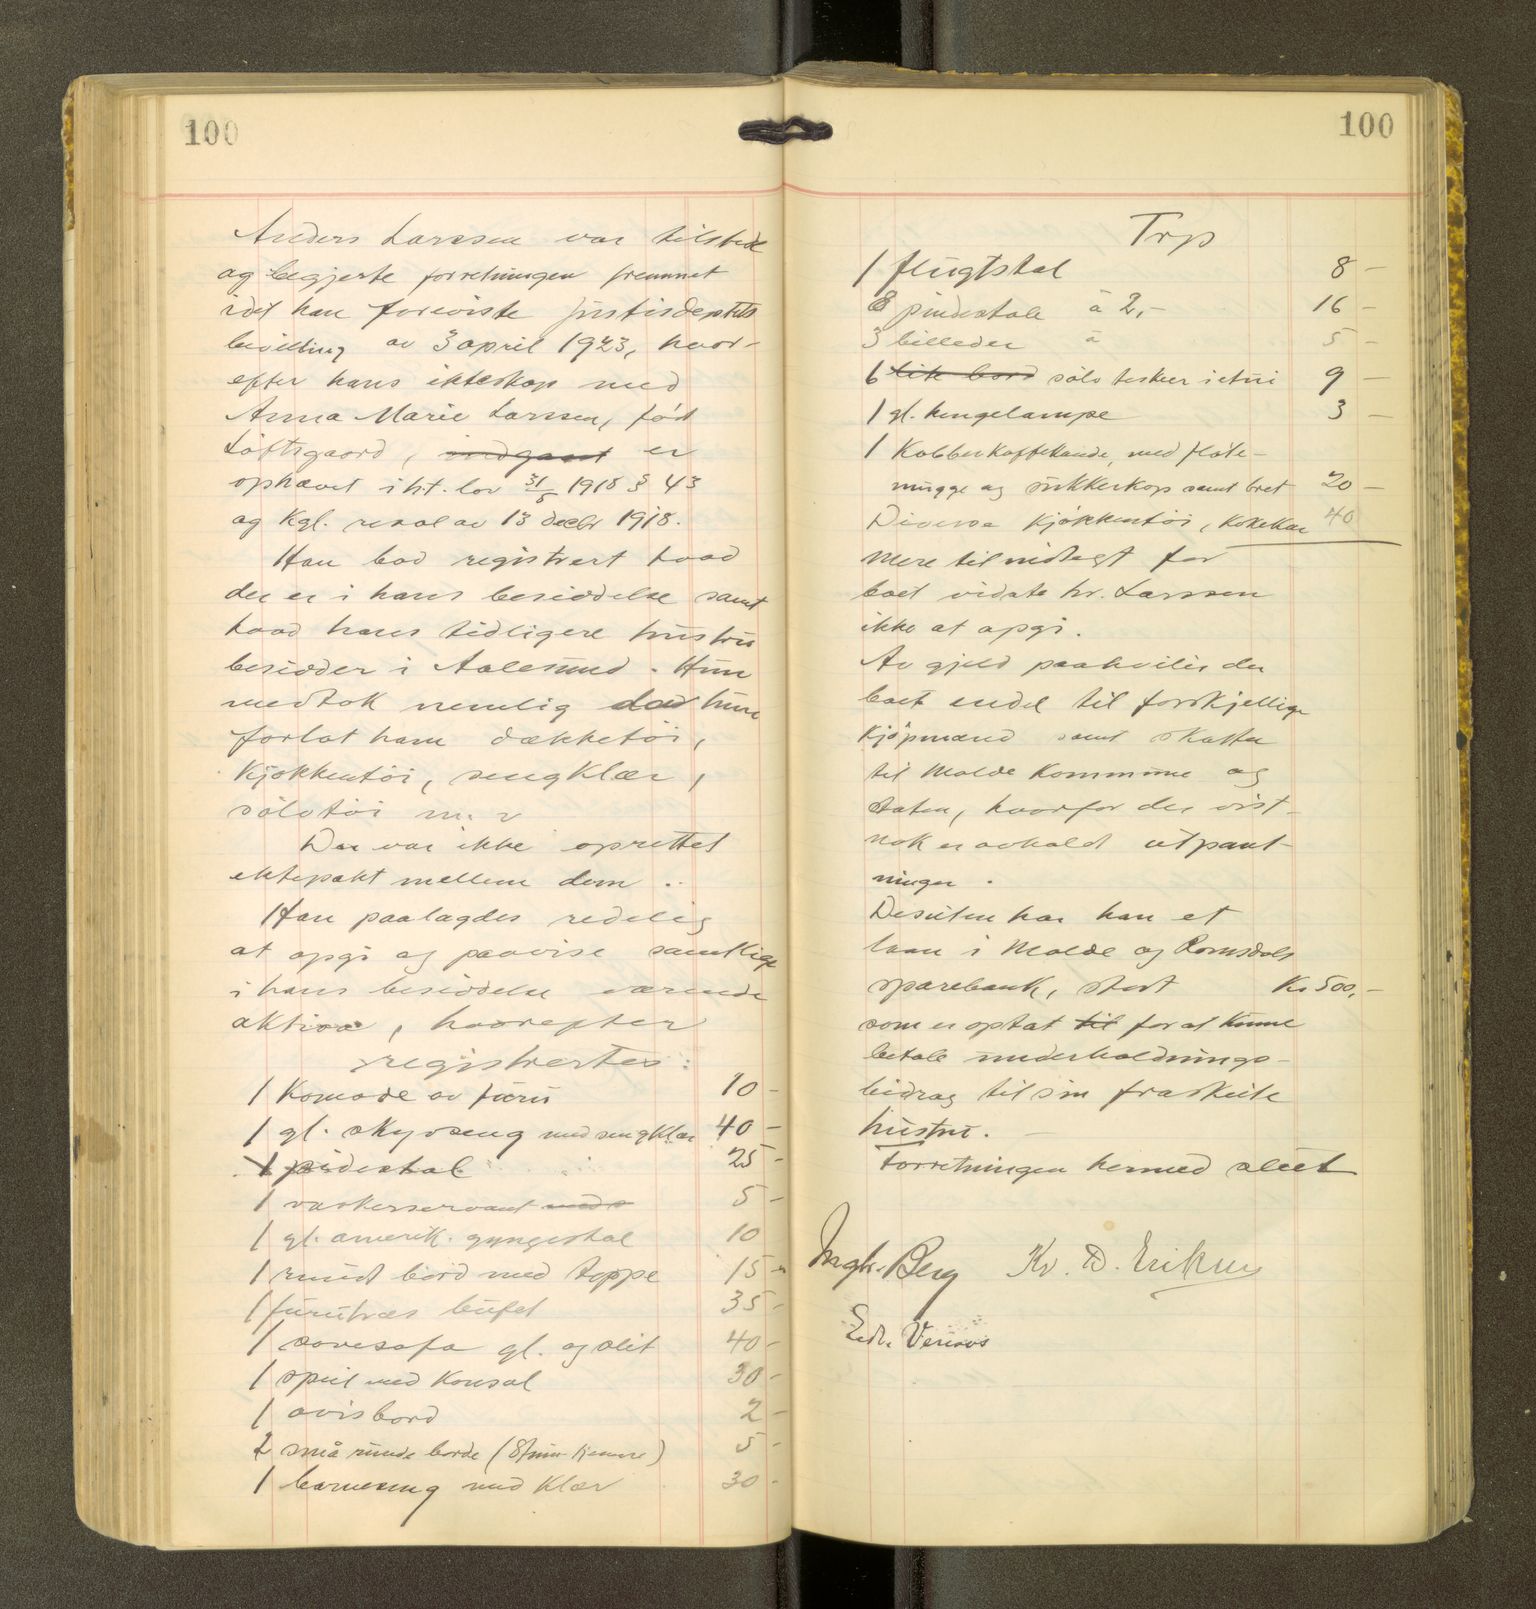 100
Anders Larssen var tilstede
og begjerte forretningen fremmet
idet han foreviste justisdeptets
bevilling av 3 april 1923, hvor-
efter hans ekteskap med
Anna Marie Larssen, født
Loftsgaard, indgaat er
ophævet i h.t. lov 31/5 1918 § 43
og Kgl. resol av 13 decbr 1918.
Han bad registrert hvad
der er i hans besiddelse samt
hvad hans tidligere hustru
besidder i Aalesund. Hun
medtok nemlig da hun
forlot ham dækketöi,
Kjøkkentöi, sengklær,
sölvtöi m. v
Der var ikke oprettet
ektepakt mellem dem.
Han paalagdes redelig
at opgi og paavise samtlige
i hans besiddelse værende
aktiva, hvorefter
registrertes:
1 Komode av furu 10 -
1 gl. skyvseng med sengklær 40 -
1 pidestal 25 -
1 vaskeservant med 5 -
1 gl. amerik. gyngestol 10
1 rundt bord med toppe 15 -
1 furutræs bufet 35 -
1 sovesofa gl. og slit 40 -
1 speil med Konsol 30 -
1 avisbord 2 -
2 små runde borde 5 -
1 barneseng med Klær 30 -
100
Trp
1 flugtstol 8 -
8 pindestole à 2,- 16 -
3 billeder à 5 -
6 sölv teskeer i etui 9 -
1 gl. hengelampe 3 -
1 Kobberkaffekande, med fløte-
mugge og sukkerkop samt bret 20 -
Diverse Kjökkentöi, Kokekar 40
Mere tilindtægt for
boet vidste hr. Larssen
ikke at opgi.
Av gjeld paahviler der
boet endel til forskjellige
Kjöpmænd samt skatter
til Molde Kommune og
staten, hvorfor der vist-
nok er avholdt utpant-
ninger.
Desuten har han et
laan i Molde og Romsdals
sparebank, stort Kr 500,-
som er optat til for at Kunne
betale underholdnings-
bidrag til sin fraskilte
hustru. -
Forretningen hermed sluttet
Ingbr. Berg Kr. D. Eriksen